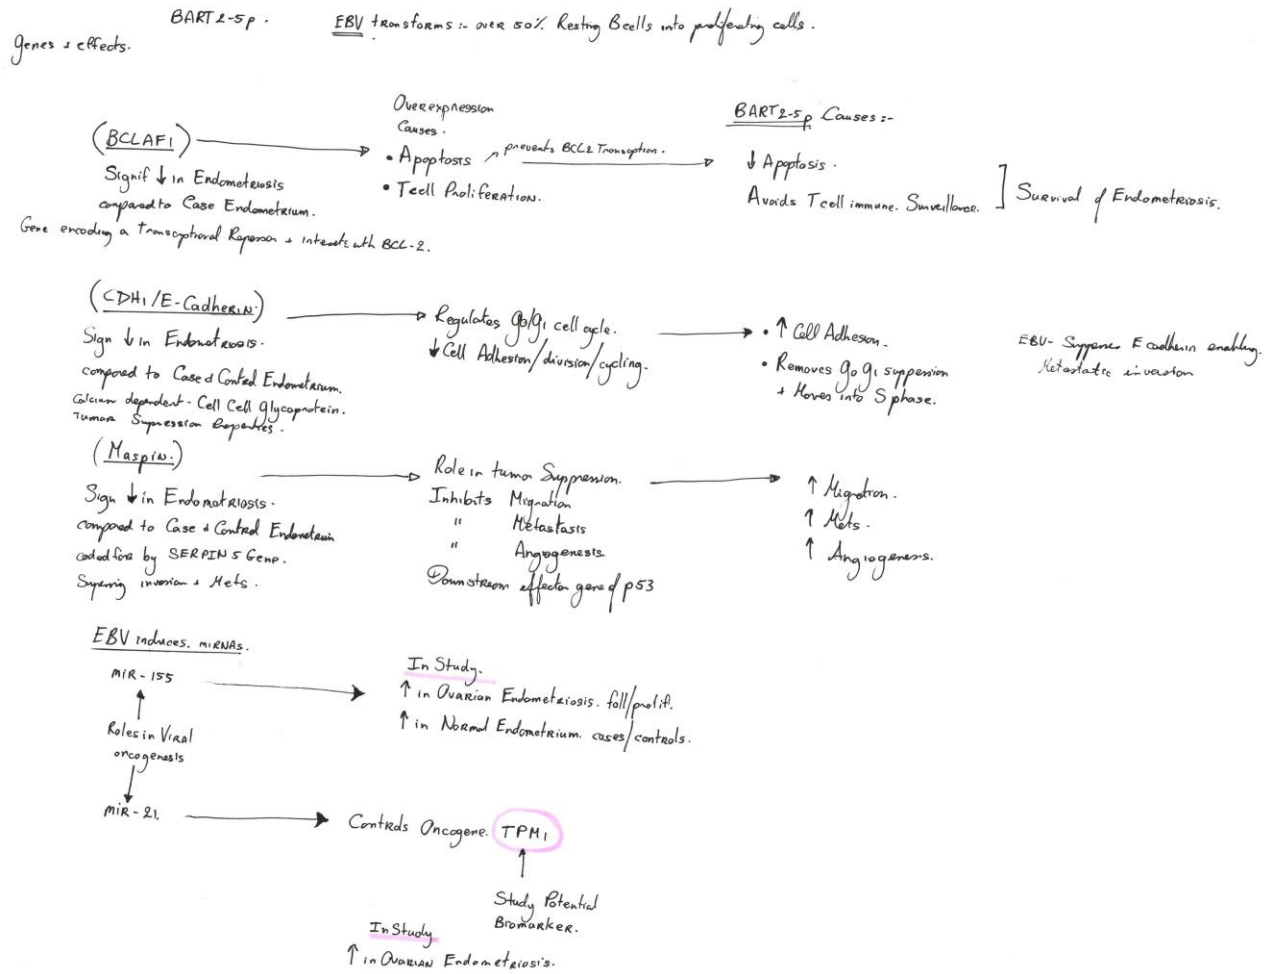 BART2-5p.
EBV transforms:- over 50% Resting Bcells into proliferating cells.
Genes & effects.
(BCLAF1)
Signif ↓ in Endometriosis
compared to Case Endometrium.
Gene encoding a Transcriptional Repressor + interacts with BCL-2.
Overexpression
Causes.
• Apoptosis
• Tcell Proliferation.
prevents BCL2 Transcription.
BART2-5p Causes:-
↓ Apoptosis.
Avoids Tcell immune. Surveillance.
] Survival of Endometriosis.
(CDH1/E-Cadherin.)
Sign ↓ in Endometriosis.
compared to Case & Control Endometrium.
Calcium dependent - Cell Cell Glycoprotein.
Tumor Supression Properties.
Regulates g0/g1 cell cycle.
↓ Cell Adhesion/division/cycling.
• ↑ Cell Adhesion.
• Removes g0 g1 suppension
+ Moves into S phase.
EBV- Suppress E cadherin enabling.
Metastatic invasion
(Maspin.)
Sign ↓ in Endometriosis.
compared to Case & Control Endometrium
coded for by SERPIN 5 Gene.
invasion + Mets.
Role in tumor Suppression.
Inhibits Migration
" Metastasis
" Angiogenesis
Downstream effector gene of p53
↑ Migration.
↑ Mets.
↑ Angiogenesis.
EBV induces. miRNAs.
miR-155
Roles in Viral
oncogenesis
miR-21.
In Study.
↑ in Ovarian Endometriosis. foll/prolif.
↑ in Normal Endometrium. cases/controls.
Controls Oncogene. TPM1
Study Potential
Biomarker.
In Study
↑ in Ovarian Endometriosis.